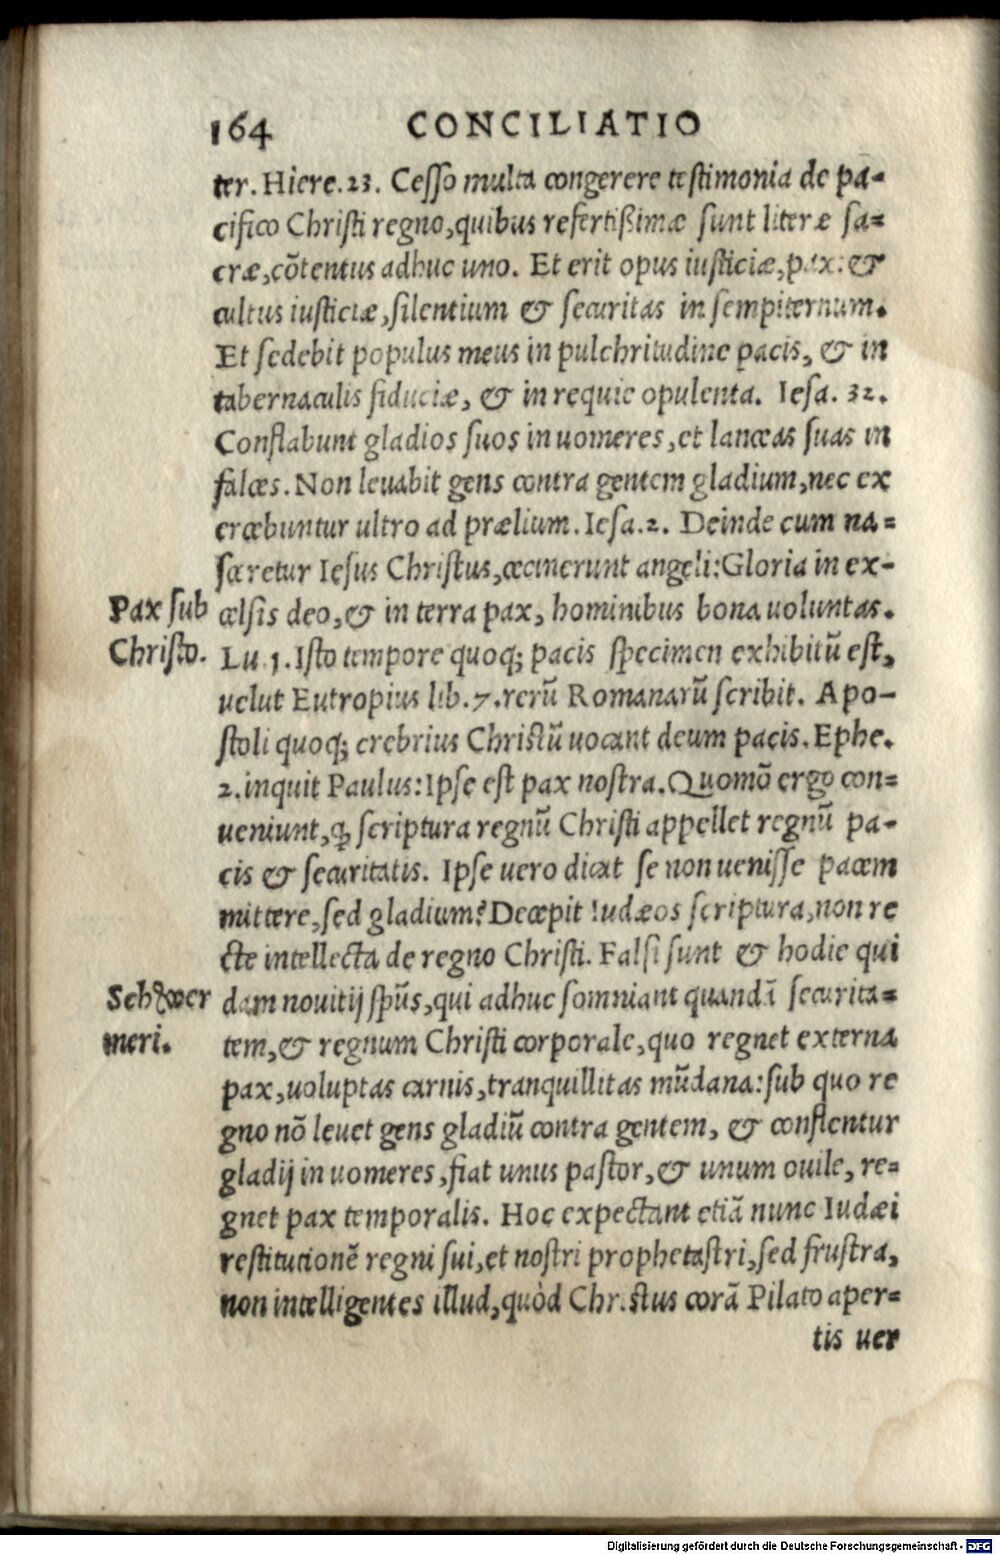 164 CONCILIATIO
ter. Hiere. 23. Cesso multa congerere testimonia de pa-
cifico Christi regno, quibus refertißimæ sunt literæ sa-
cræ, cōtentus adhuc uno. Et erit opus iusticiæ, pax: &
cultus iusticiæ, silentium & securitas in sempiternum.
Et sedebit populus meus in pulchritudine pacis, & in
tabernaculis fiduciæ, & in requie opulenta. Iesa. 32.
Conflabunt gladios suos in uomeres, et lanceas suas in
falces. Non leuabit gens contra gentem gladium, nec ex
ercebuntur ultro ad prælium. Iesa. 2. Deinde cum na-
sceretur Iesus Christus, cecinerunt angeli: Gloria in ex-
Pax sub
Christo.
celsis deo, & in terra pax, hominibus bona uoluntas.
Lu. 1. Isto tempore quoq; pacis specimen exhibitū est,
uelut Eutropius lib. 7. rerū Romanarū scribit. Apo-
stoli quoq; crebrius Christū uocant deum pacis. Ephe.
2. inquit Paulus: Ipse est pax nostra. Quomō ergo con-
ueniunt, ꝙ scriptura regnū Christi appellet regnū pa-
cis & securitatis. Ipse uero dicat se non uenisse pacem
mittere, sed gladium? Decepit Iudæos scriptura, non re
cte intellecta de regno Christi. Falsi sunt & hodie qui
Schwer
meri.
dam nouitij spūs, qui adhuc somniant quandā securita-
tem, & regnum Christi corporale, quo regnet externa
pax, uoluptas carnis, tranquillitas mūdana: sub quo re
gno nō leuet gens gladiū contra gentem, & conflentur
gladij in uomeres, fiat unus pastor, & unum ouile, re-
gnet pax temporalis. Hoc expectant etiā nunc Iudæi
restitutionē regni sui, et nostri prophetastri, sed frustra,
non intelligentes illud, quòd Christus corā Pilato aper-
tis uer
Digitalisierung gefördert durch die Deutsche Forschungsgemeinschaft - DFG